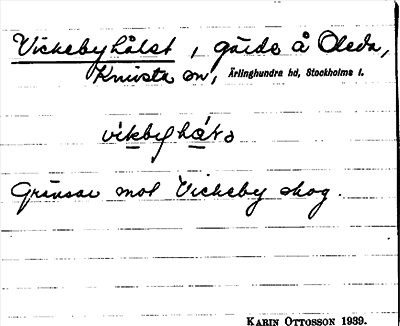 Vickebyhålst, gärde å Oleda,
Knivsta sn, Ärlinghundra hd, Stockholms l.
vikbyhå
Gränsar mot Vickeby skog.
KARIN OTTOSSON 1939.